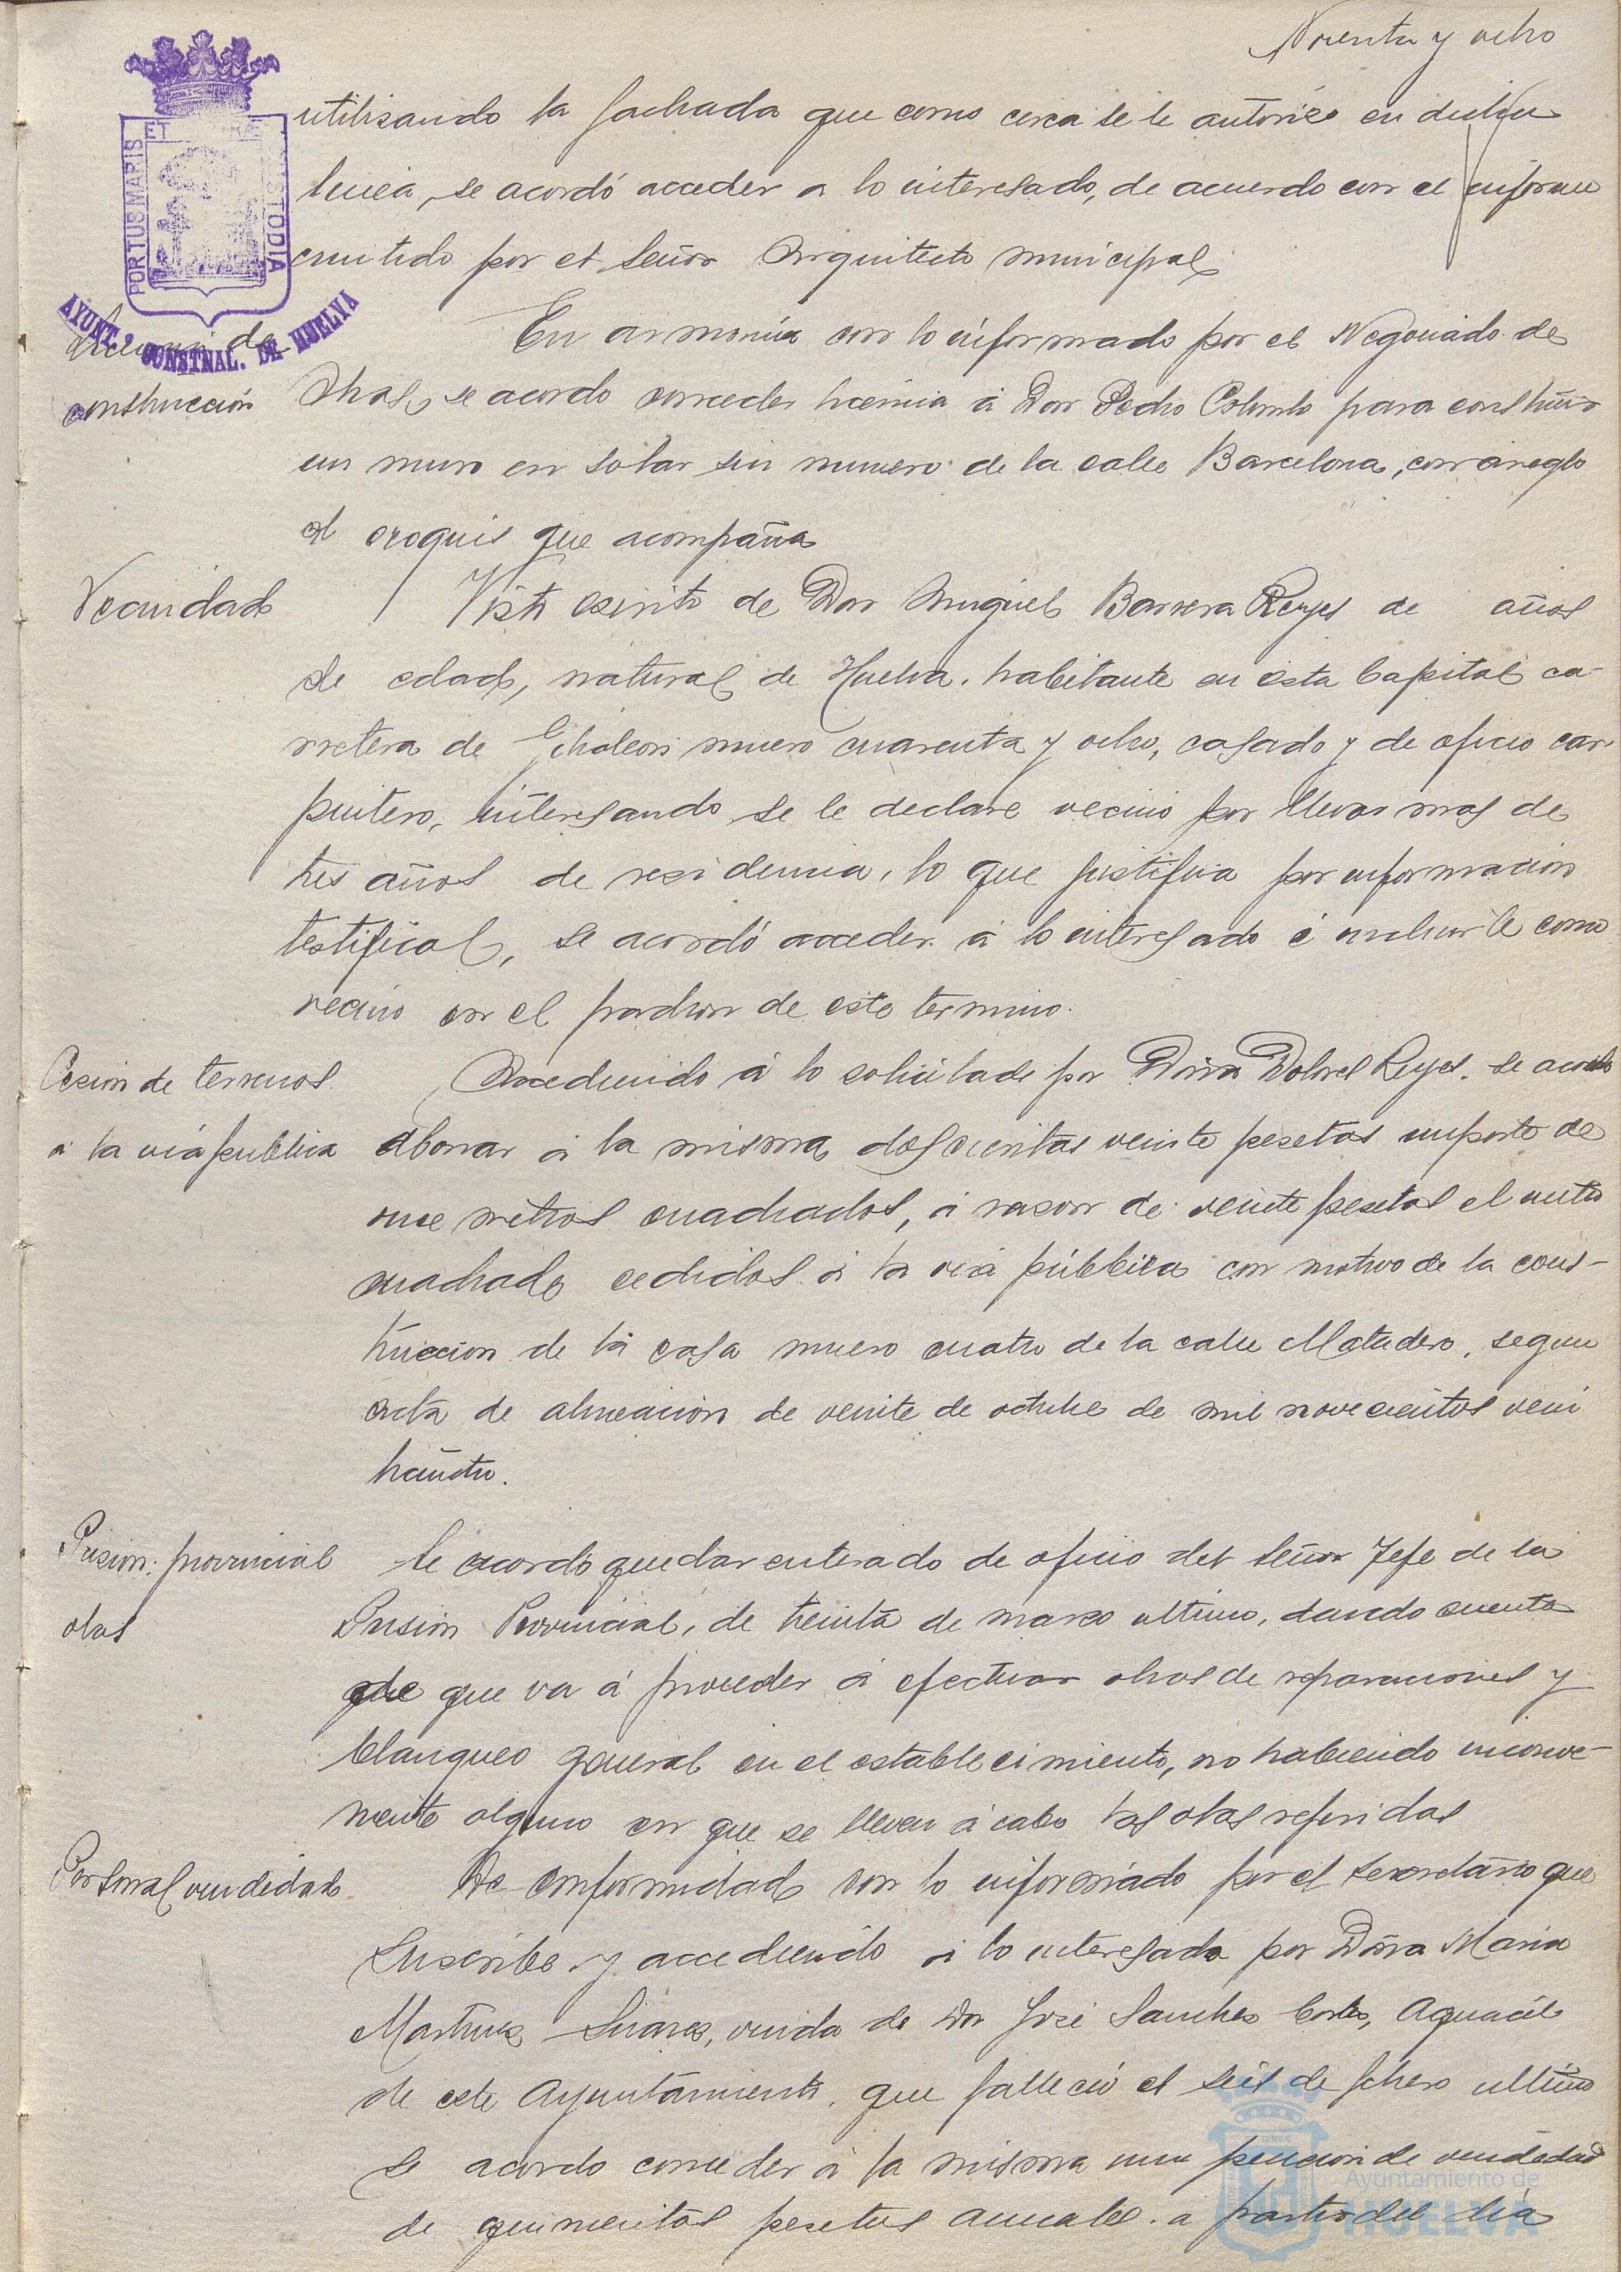 Noventa y ocho
utilizando la fachada que como cerca se le autorizó en dicha
linea, se acordó acceder a lo interesado, de acuerdo con el informe
emitido por el Señor Arquitecto municipal
PORTUS MARIS ET TERRAE CUSTODIA
AYUNT.º CONSTNAL. DE HUELVA
Licencia de
construcción
En armonia con lo informado por el Negociado de
Obras, se acordo conceder licencia á Don Pedro Colombo para construir
un muro en solar sin numero de la calle Barcelona, con arreglo
al croquis que acompaña
Vecindad
Visto escrito de Don Miguel Barrera Reyes de años
de edad, natural de Huelva, habitante en esta Capital ca-
rretera de Gibraleon numero cuarenta y ocho, casado y de oficio car-
pintero, interesando se le declare vecino por llevar mas de
tres años de residencia, lo que justifica por informacion
testifical, se acordó acceder á lo interesado é incluirle como
vecino en el padron de este termino.
Cesion de terrenos
á la via publica
Accediendo á lo solicitado por Doña Dolores Reyes, se acordo
abonar á la misma doscientas veinte pesetas importe de
once metros cuadrados, á razon de veinte pesetas el metro
cuadrado cedidos á la via pública con motivo de la cons-
truccion de la casa numero cuatro de la calle Matadero, segun
acta de alineacion de veinte de octubre de mil novecientos vein
ticuatro.
Prision provincial
obras
Se acordo quedar enterado de oficio del Señor Jefe de la
Prision Provincial, de treinta de marzo ultimo, dando cuenta
de que va á proceder á efectuar obras de reparaciones y
blanqueo general en el establecimiento, no habiendo inconve-
niente alguno en que se lleven á cabo las obras referidas
Personal viudedad
De conformidad con lo informado por el Secretario que
suscribe y accediendo á lo interesado por Doña Maria
Martinez Suarez, viuda de Don José Sanchez Cortes, Aguacil
de este Ayuntamiento, que falleció el seis de febrero ultimo
se acordo conceder á la misma una pension de viudedad
de quinientas pesetas anuales a partir del dia
Ayuntamiento de
HUELVA